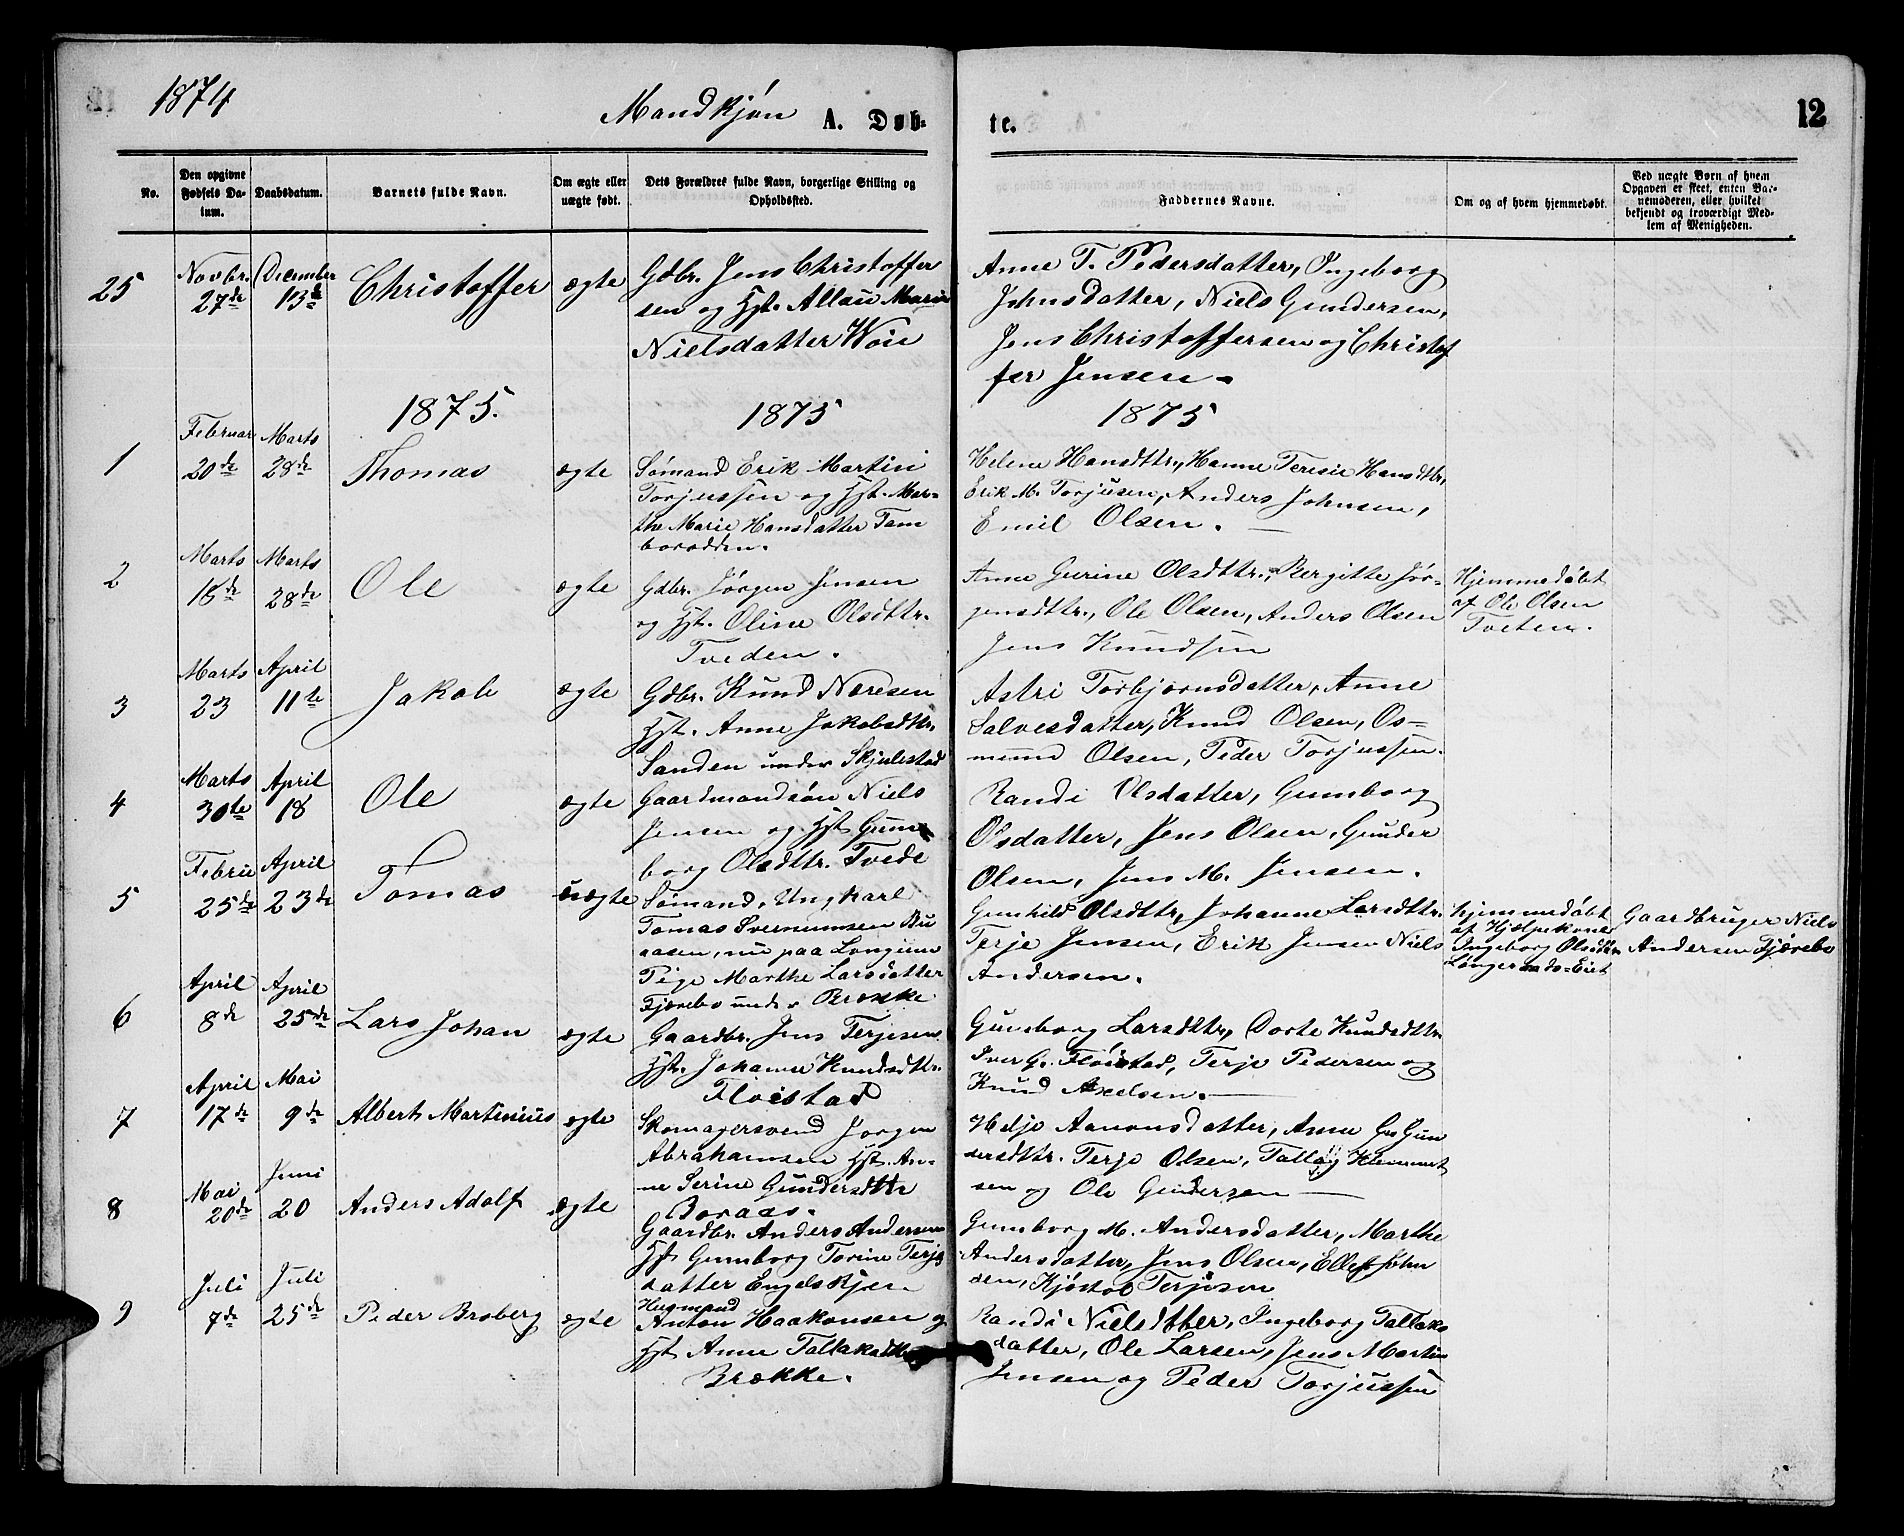 1874
Mandkjøn A. Døb-
te.
12
No.
Den opgivne Fødsels Da-
tum.
Daabsdatum.
Barnets fulde Navn.
Om ægte eller
uægte født.
Dets Forældres fulde Navn, borgerlige Stilling og
Opholdssted.
Faddernes Navne.
Om og af hvem hjemmedøbt.
Ved uægte Børn af hvem
Opgaven er skeet, enten Bar-
nemoderen, eller hvilket
bekjendt og troværdigt Med-
lem af Menigheden.
25
Novbr.
27de
December
13de
Christoffer
ægte
Gdbr. Jens Christoffer
sen og Hst. Allau Marie
Nielsdatter Woie
Anne T. Pedersdatter, Ingeborg
Johnsdatter, Niels Gundersen,
Jens Christoffersen og Christof
fer Jensen.
1875.
1875
1875
1
Februar
20de
Marts
28de
Thomas
ægte
Sømand Erik Martin
Torjussen og Hst. Mar-
the Marie Hansdatter Tam
borodden.
Helene Hansdttr., Hanne Teresie Hansdtr,
Erik M. Torjusen, Anders Johnsen,
Emil Olsen.
2
Marts
18de
Marts
28de
Ole
ægte
Gdbr. Jørgen Jensen
og Hst. Oline Olsdttr.
Tveden.
Anne Gurine Olsdttr., Bergitte Jør-
gensdttr., Ole Olsen, Anders Olsen
Jens Knudsen
Hjemmedøbt
af Ole Olsen
Tveten.
3
Marts
23
April
11te
Jakob
ægte
Gdbr. Knud Neresen
Hst. Anne Jakobsdttr.
Sanden under Skjulestad
Astri Torbjørnsdatter, Anne
Salvesdatter, Knud Olsen, Os-
mund Olsen, Peder Torjussen.
4
Marts
30te
April
18
Ole
ægte
Gaardmandsøn Niels
Jensen og Hst Gun
borg Olsdttr. Tvede
Randi Olsdatter, Gunborg
Olsdatter, Jens Olsen, Gunder
Olsen, Jens M. Jensen.
5
Febru
25de
April
23de
Tomas
uægte
Sømand, Ungkarl
Tomas Svennumsen Bu
aasen, nu paa Longum
Pige Marthe Larsdatter
Fjærebo under Brække
Gunhild Olsdttr, Johanne Larsdttr.
Terje Jensen, Erik Jensen Niels
Andersen.
hjemmedøbt
af Hjælpekone
Ingeborg Olsdttr
Longumds-Eiet
Gaardbruger Niels
Andersen Fjærebo
6
April
8de
April
25de
Lars Johan
ægte
Gaardbr. Jens Terjesen
Hst. Johanne Knudsdttr.
Fløistad
Gunborg Larsdttr, Dorte Knudsdttr.
Iver G. Fløistad, Terje Pedersen og
Knud Axelsen.
7
April
17de
Mai
9de
Albert Martinius
ægte
Skomagersvend Jørgen
Abrahamsen Hst. An-
ne Serine Gundersdttr
Boraas.
Helje Aanonsdatter, Anne Gun
dersdttr. Terje Olsen, Tallag Klemmet
sen og Ole Gundersen
8
Mai
20de
Juni
20
Anders Adolf
ægte
Gaardbr. Anders Andersen
Hst Gunborg Torine Terjes
datter Engelskjøn
Gunborg M. Andersdatter, Marthe
Andersdatter, Jens Olsen, Ellef John
den, Kjøstol Terjesen
9
Juli
7de
Juli
25de
Peder Broberg
ægte
Husmand
Anton Haakonsen og
Hst Anne Tallaksdttr
Brække.
Randi Nielsdtter, Ingeborg Tallaks
datter, Ole Larsen, Jens Martin
Jensen og Peder Torjussen